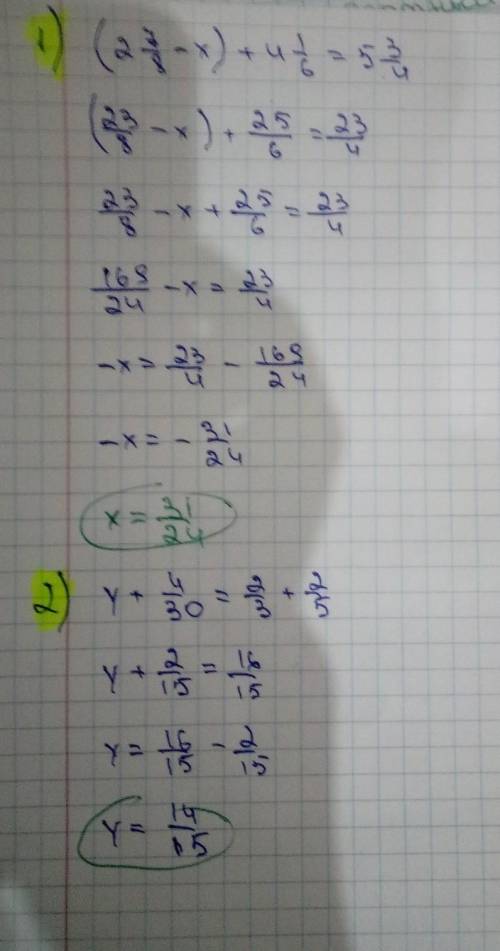 1) (2 7/8 - x) + 4 1/6 = 5 3/4
(23/8 - x) + 25/6 = 23/4
23/8 - x + 25/6 = 23/4
169/24 - x = 23/4
-x = 23/4 - 169/24
-x = - 31/24
x = 31/24
2) y + 4/30 = 2/3 + 2/5
y + 2/15 = 16/15
y = 16/15 - 2/15
y = 14/15